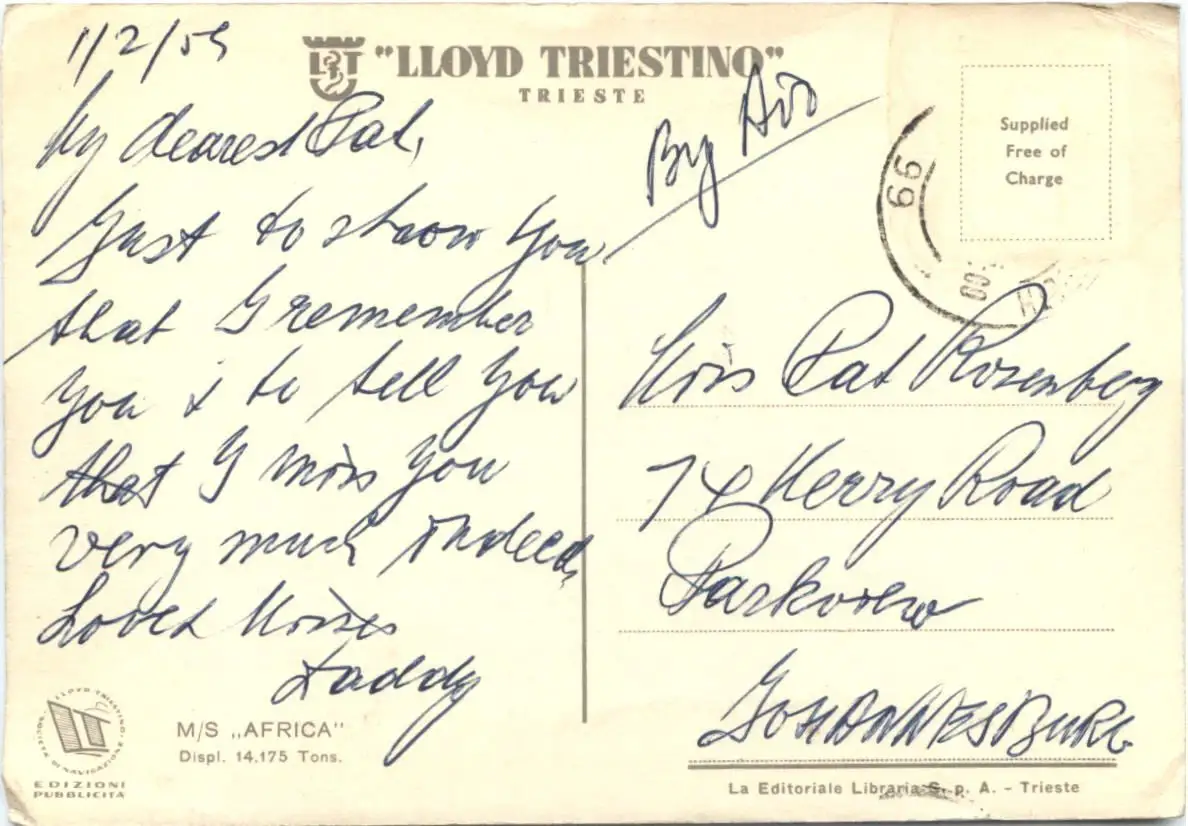 1/2/59
"LLOYD TRIESTINO"
TRIESTE
By Air
Supplied
Free of
Charge
66
My dearest Pat,
Just to show you
that I remember
you & to tell you
that I miss you
very much indeed,
Love & Kisses
Daddy
Miss Pat Rosenberg
74 Kerry Road
Parkview
JOHANNESBURG
LLOYD TRIESTINO
SOCIETÀ DI NAVIGAZIONE
EDIZIONI
PUBBLICITÀ
M/S „AFRICA"
Displ. 14.175 Tons.
La Editoriale Libraria S. p. A. - Trieste